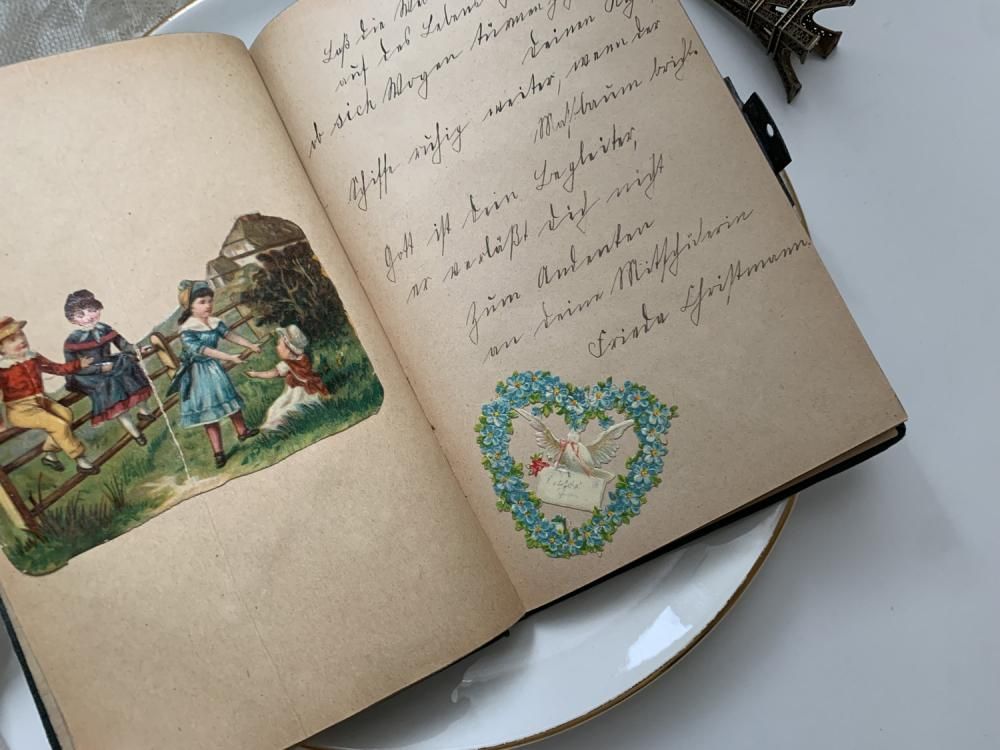 Laß die
auf des Lebens
ob sich Wogen türmen
Deinen
Schiffe ruhig weiter, wenn der
Mastbaum bricht.
Gott ist dein Begleiter,
er verläßt Dich nicht
Zum Andenken
an deine Mitschülerin
Frieda Christmann.